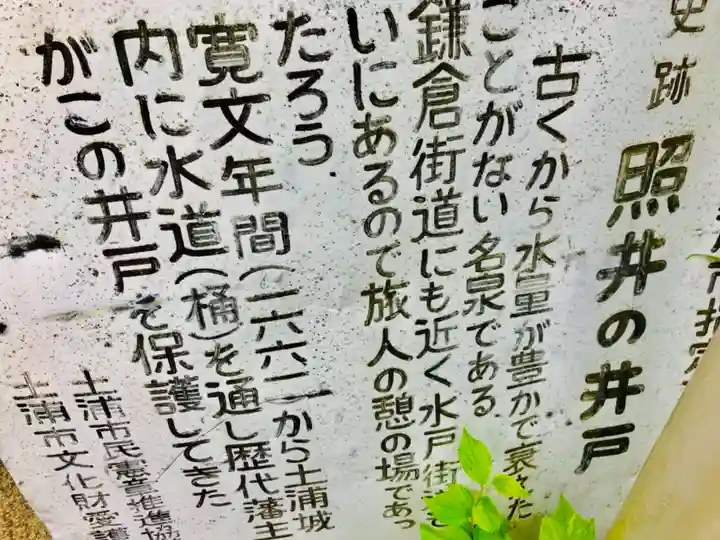 市指定
史跡 照井の井戸
古くから水量が豊かで衰えた
ことがない名泉である.
鎌倉街道にも近く水戸街道
いにあるので旅人の憩の場であっ
たろう.
寛文年間(一六六二)から土浦城
内に水道(桶)を通し歴代藩主
がこの井戸を保護してきた
土浦市民憲章推進協
土浦市文化財愛護